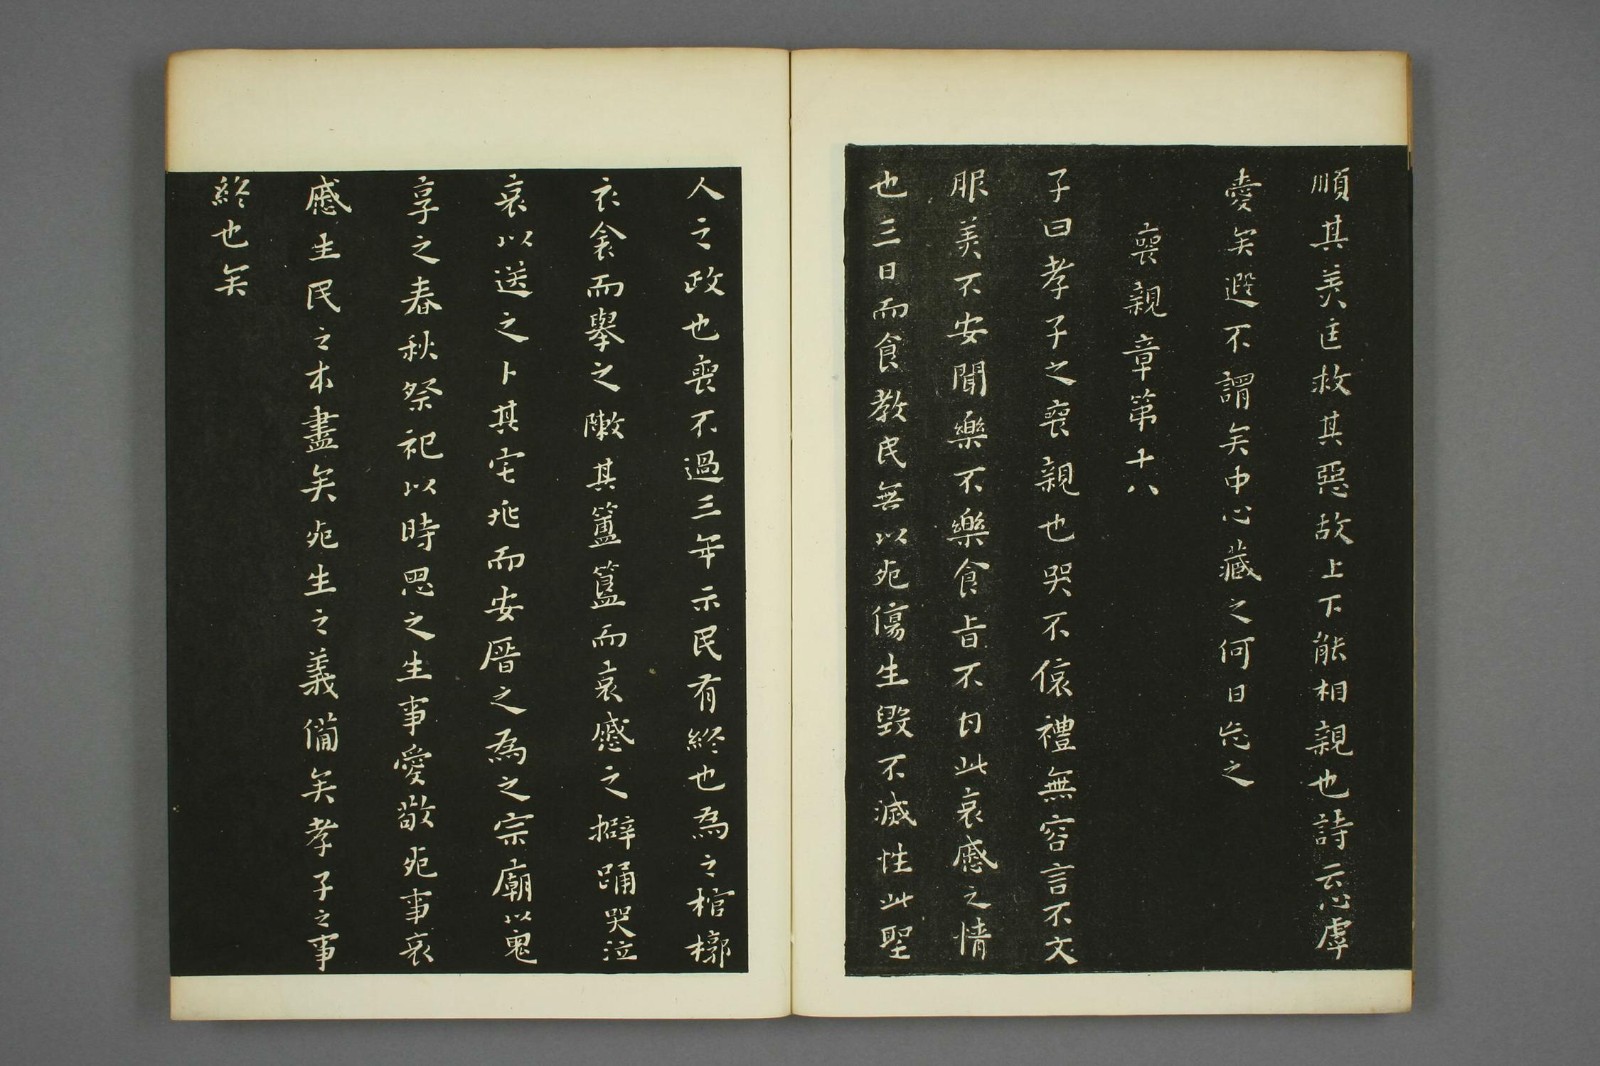 順其美匡救其惡故上下能相親也詩云心虖
愛矣遐不謂矣中心藏之何日忘之
喪親章第十八
子曰孝子之喪親也哭不偯禮無容言不文
服美不安聞樂不樂食旨不甘此哀慼之情
也三日而食教民無以死傷生毀不滅性此聖
人之政也喪不過三年示民有終也為之棺槨
衣衾而舉之陳其簠簋而哀慼之擗踊哭泣
哀以送之卜其宅兆而安厝之為之宗廟以鬼
享之春秋祭祀以時思之生事愛敬死事哀
慼生民之本盡矣死生之義備矣孝子之事
終也矣